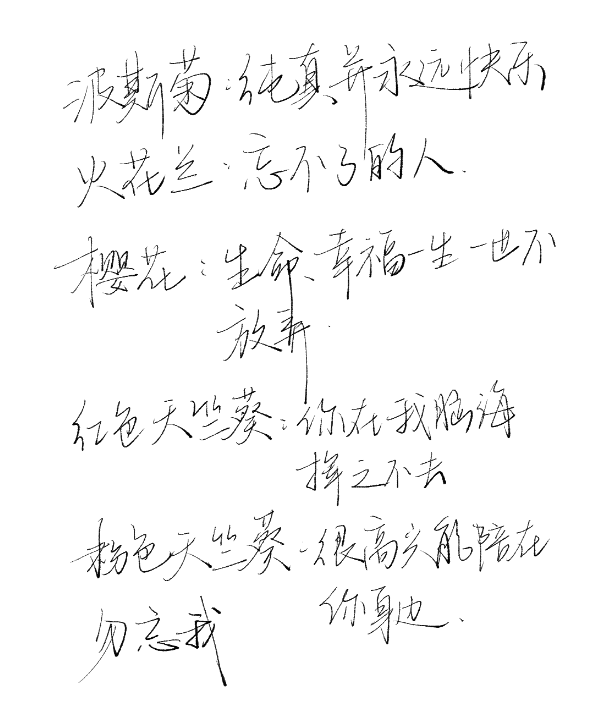 波斯菊:纯真并永远快乐
火花兰:忘不了的人.
樱花:生命、幸福一生一世不
放弃.
红色天竺葵:你在我脑海
挥之不去
粉色天竺葵-很高兴能陪在
你身边.
勿忘我